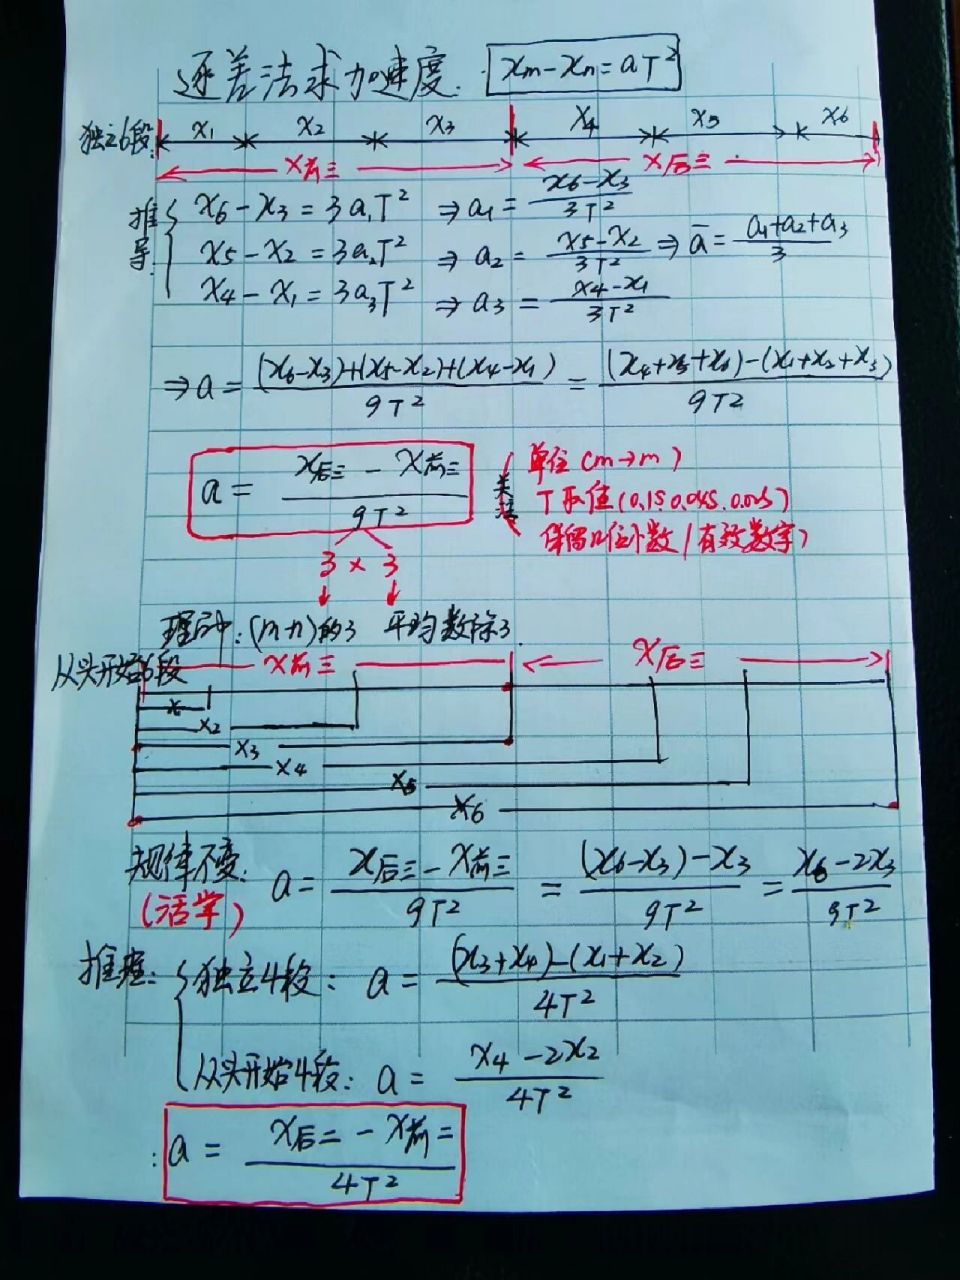 逐差法求加速度. xm-xn=aT²
独立6段: x1 x2 x3 x4 x5 x6
x前三 x后三
推导 x6-x3=3a1T² ⇒a1=x6-x3/3T²
x5-x2=3a2T² ⇒a2=x5-x2/3T² ⇒ā=a1+a2+a3/3
x4-x1=3a3T² ⇒a3=x4-x1/3T²
⇒a=(x6-x3)+(x5-x2)+(x4-x1)/9T²=(x4+x5+x6)-(x1+x2+x3)/9T²
a=x后三-x前三/9T²
关注
单位(cm→m)
T取值(0.1s
保留n位小数/有效数字)
3×3
理解:(m-n)的3 平均数除3
从头开始6段 x前三 x后三
x
x2
x3
x4
x5
x6
规律不变: a=x后三-x前三/9T²=(x6-x3)-x3/9T²=x6-2x3/9T²
(活学)
推广: 独立4段: a=(x3+x4)-(x1+x2)/4T²
从头开始4段: a=x4-2x2/4T²
: a=x后二-x前二/4T²